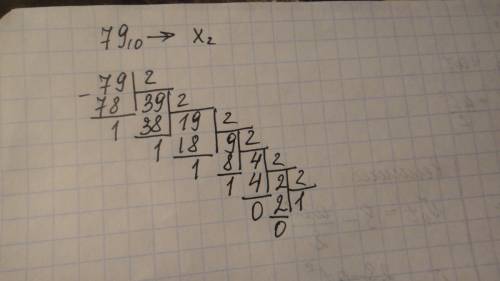 79₁₀ → X₂
- 79 2
78 39 2
1 38 19 2
1 18 9 2
1 8 4 2
1 4 2 2
0 2 1
0